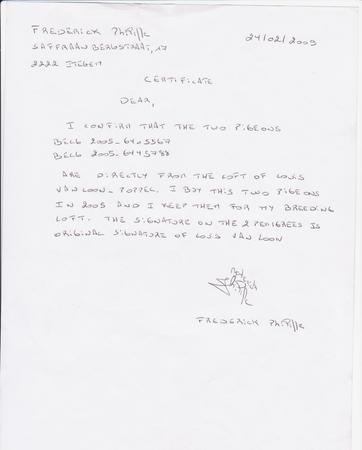 FREDERICK PhPillc
SAFFRAAN BERGSTRAAT, 17
2222 ITEGEM
24/02/2009
CERTIFICATE
DEAR,
I CONFIRM THAT THE TWO PIGEONS
BELG 2005-6405567
BELG 2005-6445788
ARE DIRECTLY FROM THE LOFT OF LOUIS
VAN LOON - POPPEL. I BUY THIS TWO PIGEONS
IN 2005 AND I KEEP THEM FOR MY BREEDING
LOFT. THE SIGNATURE ON THE 2 PEDIGREES IS
ORIGINAL SIGNATURE OF LOUIS VAN LOON
FREDERICK PhPillc